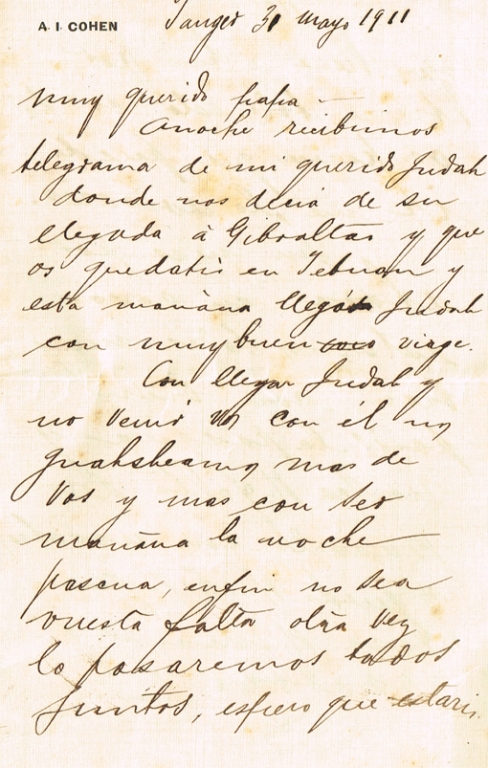 A. I. COHEN
Tanger 31 mayo 1911
muy querido papa —
Anoche recibimos
telegrama de mi querido Judah
donde nos decia de su
llegada á Gibraltar y que
os quedatis en Tetuan y
esta mañana llegó Judah
con muy buen viage.
Con llegar Judah y
no venir vos con él
mas de
vos y mas con ser
mañana la noche
pascua, enfin no sea
vuesta falta otra vez
lo pasaremos todos
juntos, espero que estaris